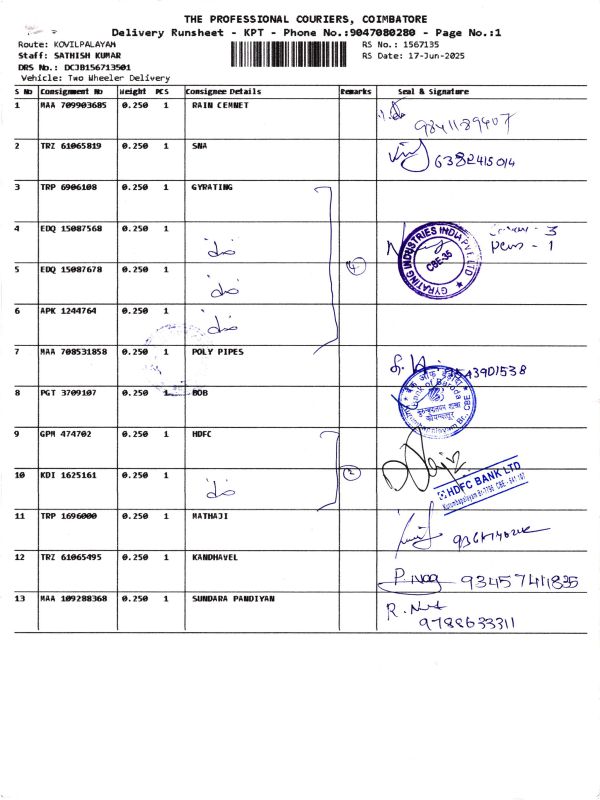 THE PROFESSIONAL COURIERS, COIMBATORE
Delivery Runsheet - KPT - Phone No.:9047080280 - Page No.:1
Route: KOVILPALAYAM RS No.: 1567135
Staff: SATHISH KUMAR RS Date: 17-Jun-2025
DRS No.: DCJB156713501
Vehicle: Two Wheeler Delivery
S No Consignment No Weight PCS Consignee Details Remarks Seal & Signature
1 MAA 709903685 0.250 1 RAIN CEMNET
9841189407
2 TRZ 61065819 0.250 1 SNA
6382415014
3 TRP 6906108 0.250 1 GYRATING
4 EDQ 15087568 0.250 1 - 3
do pcus - 1
GYRATING INDUSTRIES INDIA PVT. LTD
CBE-35
5 EDQ 15087678 0.250 1 4
do
6 APK 1244764 0.250 1
do
7 MAA 708531858 0.250 1 POLY PIPES
8 PGT 3709107 0.250 1 BOB
बैंक ऑफ़ बड़ौदा
Bank of Baroda
9 GPM 474702 0.250 1 HDFC
10 KDI 1625161 0.250 1 2
do
HDFC BANK LTD
11 TRP 1696000 0.250 1 MATHAJI
12 TRZ 61065495 0.250 1 KANDHAVEL
13 MAA 109288368 0.250 1 SUNDARA PANDIYAN
9788633311